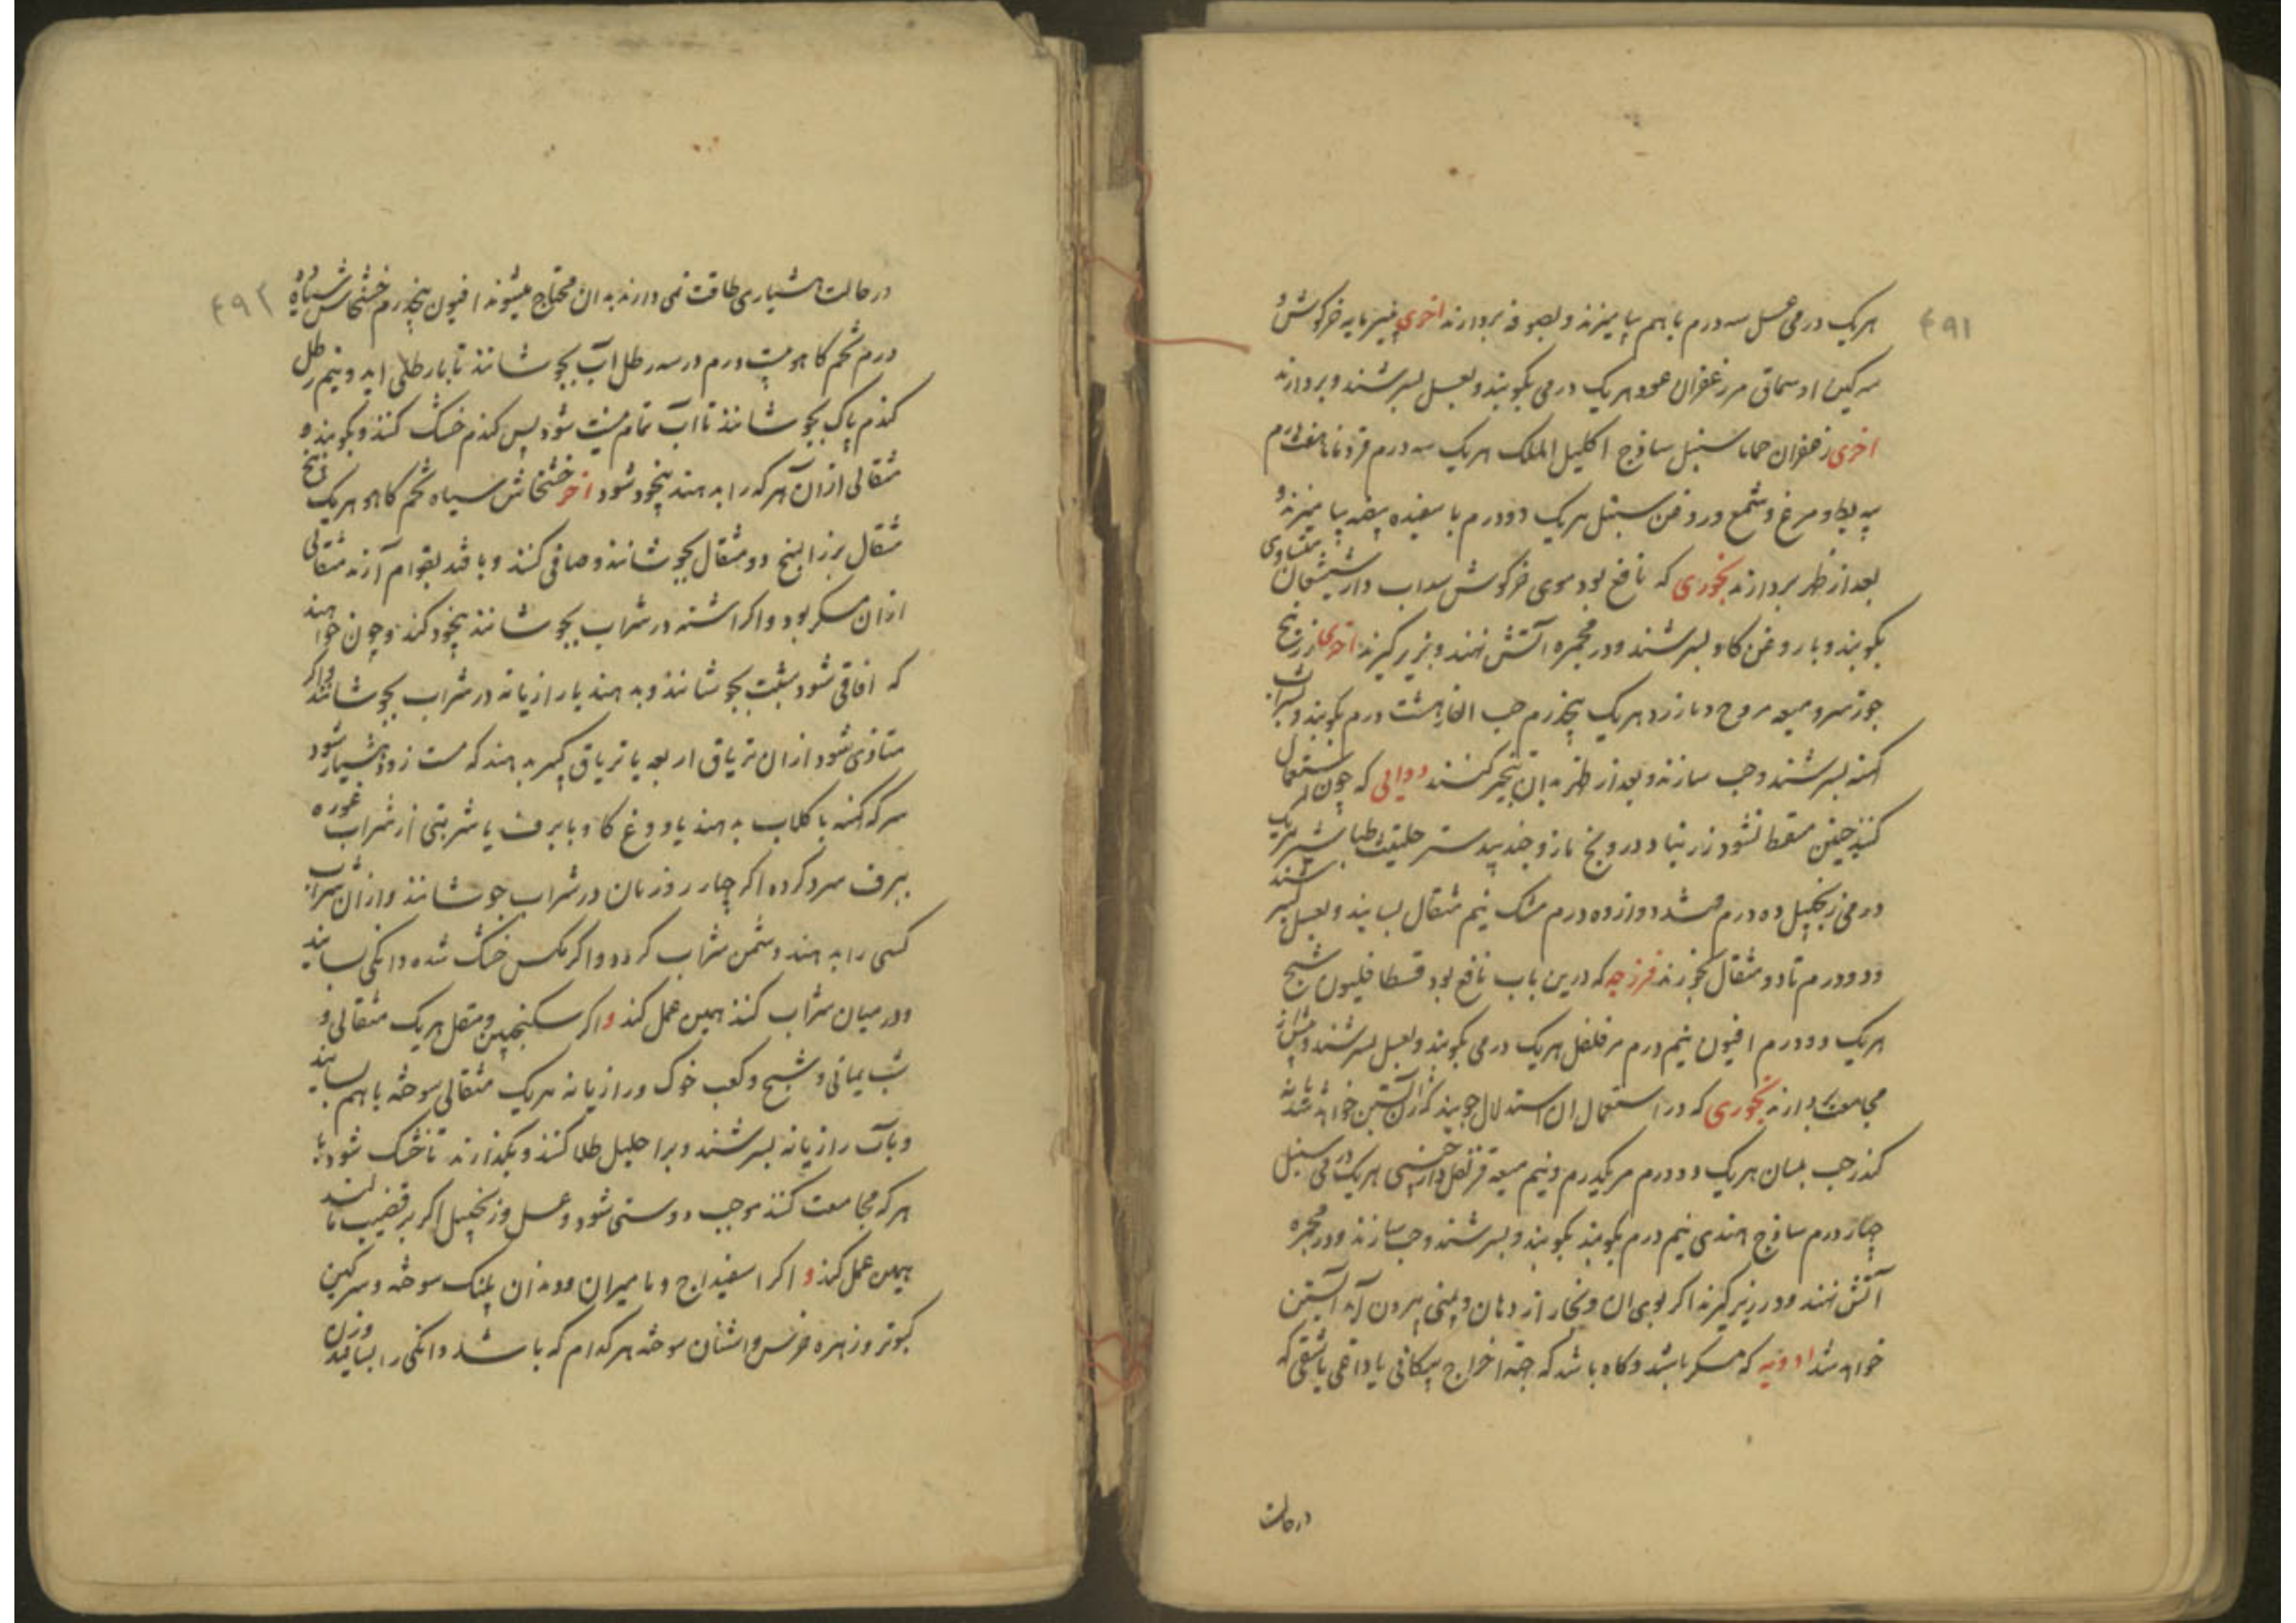 ۴۹۱
هریک درمی عسل سه درم با هم بیامیزند و بصوفه بردارند اخری پنیر مایه خرکوش و
سرکین او سماق مر زعفران عود هریک درمی بکوبند و بعسل بسرشند و بردارند
اخری زعفران حماما سنبل سافج اکلیل الملک هریک سه درم قردمانا هفت درم
پیه بط و مرغ و شمع و روغن سنبل هریک دو درم با سفیده بیضه بیامیزند و
بعد از طهر بردارند بخوری که نافع بود موی خرکوش سداب دارشیشعان متساوی
بکوبند و با روغن کاو بسرشند و در مجمره آتش نهند و بزیر کیرند اخری زرنیخ
جوز سرو میعه و مازو هریک پنجدرم حب الغار هشت درم بکوبند و بشراب
کهنه بسرشند و حب سازند و بعد از طهر بدان تبخیر کنند دوایی که چون استعمال
کنند جنین سقط نشود زرنباد درونج مازو جندبیدستر حلتیت طباشیر هریک
درمی زنجبیل ده درم قند دوازده درم مشک نیم مثقال بسایند و بعسل بسرشند
دو درم تا دو مثقال بخورند فرزجه که درین باب نافع بود شیح
هریک دو درم افیون نیم درم مر فلفل هریک درمی بکوبند و بعسل بسرشند و پیش از
مجامعت بردارند بخوری که در استعمال ان استدلال جویند که زن آبستن خواهد شد یا نه
کندر حب بلسان هریک دو درم مر یکدرم و نیم میعه قرنفل دارچینی هریک درمی سنبل
چهار درم سافج هندی نیم درم بکوبند بکوبند و بسرشند و حب سازند و در مجمره
آتش نهند و در زیر کیرند اکر بوی ان و بخار از دهان و بینی بیرون آید آبستن
خواهد شد ادویه که مسکر باشد و کاه باشد که جهة اخراج پیکانی یا داغی یا شقی که
درحالت
۴۹۲
درحالت هشیاری طاقت نمی دارند بدان محتاج میشوند افیون پنجدرم خشخاش سیاه ده
درم تخم کاهو بیست درم در سه رطل اب بجوشانند تا با رطلی اید و نیم رطل
کندم پاک بجوشانند تا آب تمام نیست شود پس کندم خشک کنند و بکوبند و
مثقالی از ان هر که را بدهند بیخود شود اخر خشخاش سیاه تخم کاهو هریک پنج
مثقال بزر البنج دو مثقال بجوشانند و صافی کنند و با قند بقوام آرند مثقالی
ازان مسکر بود و اکر اشنه در شراب بجوشانند بیخود کند و چون خواهند
که افاقی شود شبت بجوشانند و بدهند یا رازیانه در شراب بجوشانند و اکر
متاذی شود از ان تریاق اربعه یا تریاق کبیر بدهند که مست زود هشیار شود
سرکه کهنه با کلاب بدهند یا دوغ کاو با برف یا شربتی از شراب غوره
ببرف سرد کرده اکر چهار روز نان در شراب جوشانند و ازان شراب
کسی را بدهند دشمن شراب کردد و اکر مکس خشک شده دانکی بسایند
و در میان شراب کنند همین عمل کند و اکر سکنجبین و مقل هریک مثقالی و
شب یمانی و شیح و کعب خوک و رازیانه هریک مثقالی سوخته با هم بسایند
و باب رازیانه بسرشند و بر احلیل طلا کنند و بکذارند تا خشک شود با
هر که مجامعت کنند موجب دوستی شود و عسل و زنجبیل اکر بر قضیب مالند
همین عمل کند و اکر اسفیداج و مامیران و دندان پلنک سوخته و سرکین
کبوتر و زهره خرس و اشنان سوخته هر کدام که باشد دانکی را بسایند وزن